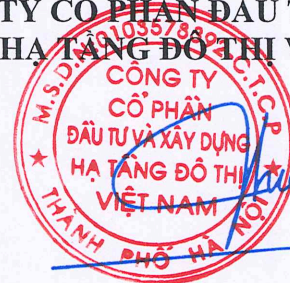 TY CỔ PHẦN ĐẦU
HẠ TẦNG ĐÔ THỊ V
M.S.D.N C.T.C.P
CÔNG TY
CỔ PHẦN
ĐẦU TƯ VÀ XÂY DỰNG
HẠ TẦNG ĐÔ THỊ
VIỆT NAM
THÀNH PHỐ HÀ NỘI